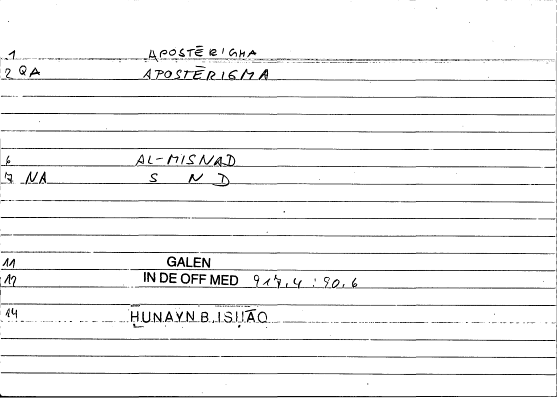 1 APOSTĒRIGMA
2 QA APOSTĒRIGMA
6 AL-MISNAD
7 NA S N D
11 GALEN
12 IN DE OFF MED 917,4 : 90.6
14 ḤUNAYN B. ISḤĀQ